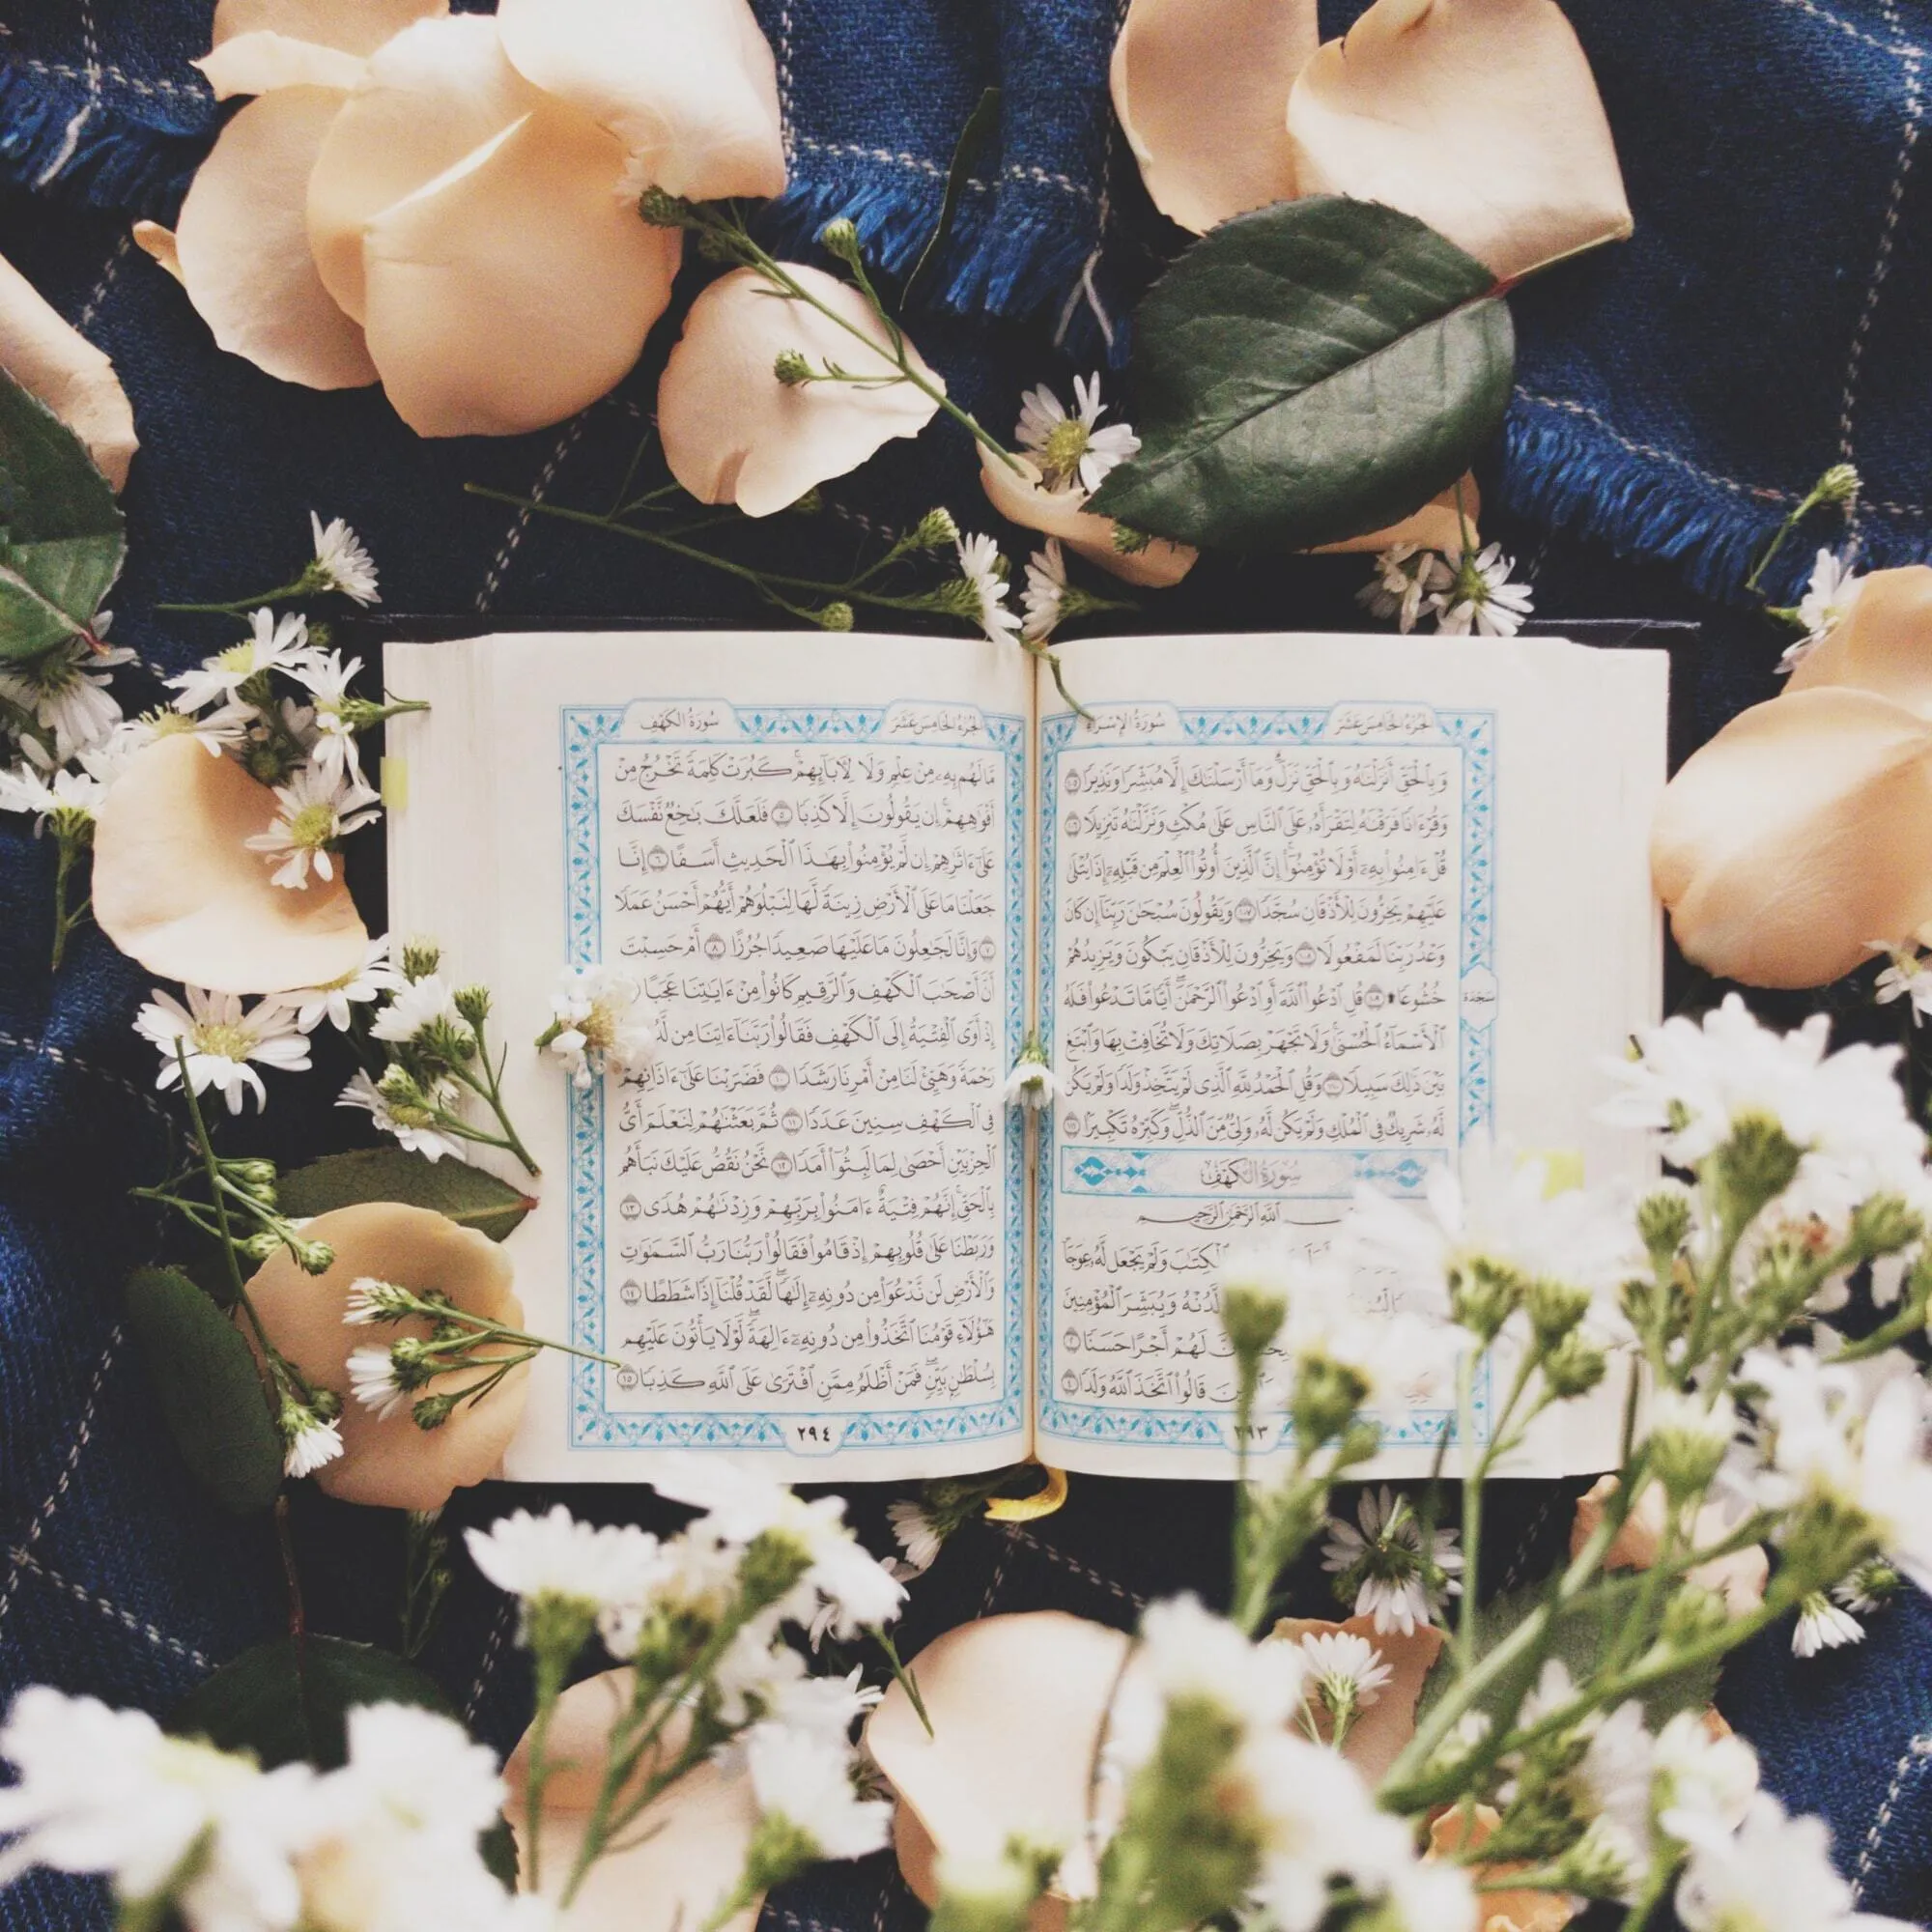 الجزء الخامس عشر
سورة الإسراء
وَبِالْحَقِّ أَنزَلْنَٰهُ وَبِالْحَقِّ نَزَلَ وَمَآ أَرْسَلْنَٰكَ إِلَّا مُبَشِّرًا وَنَذِيرًا ١٠٥
وَقُرْءَانًا فَرَقْنَٰهُ لِتَقْرَأَهُۥ عَلَى ٱلنَّاسِ عَلَىٰ مُكْثٍ وَنَزَّلْنَٰهُ تَنزِيلًا ١٠٦
قُلْ ءَامِنُوا۟ بِهِۦٓ أَوْ لَا تُؤْمِنُوٓا۟ إِنَّ ٱلَّذِينَ أُوتُوا۟ ٱلْعِلْمَ مِن قَبْلِهِۦٓ إِذَا يُتْلَىٰ
عَلَيْهِمْ يَخِرُّونَ لِلْأَذْقَانِ سُجَّدًا ١٠٧ وَيَقُولُونَ سُبْحَٰنَ رَبِّنَآ إِن كَانَ
وَعْدُ رَبِّنَا لَمَفْعُولًا ١٠٨ وَيَخِرُّونَ لِلْأَذْقَانِ يَبْكُونَ وَيَزِيدُهُمْ
خُشُوعًا ۩ ١٠٩ قُلِ ٱدْعُوا۟ ٱللَّهَ أَوِ ٱدْعُوا۟ ٱلرَّحْمَٰنَ أَيًّا مَّا تَدْعُوا۟ فَلَهُ
سجدة
ٱلْأَسْمَآءُ ٱلْحُسْنَىٰ وَلَا تَجْهَرْ بِصَلَاتِكَ وَلَا تُخَافِتْ بِهَا وَٱبْتَغِ
بَيْنَ ذَٰلِكَ سَبِيلًا ١١٠ وَقُلِ ٱلْحَمْدُ لِلَّهِ ٱلَّذِى لَمْ يَتَّخِذْ وَلَدًا وَلَمْ يَكُن
لَّهُۥ شَرِيكٌ فِى ٱلْمُلْكِ وَلَمْ يَكُن لَّهُۥ وَلِىٌّ مِّنَ ٱلذُّلِّ وَكَبِّرْهُ تَكْبِيرًا ١١١
سُورَةُ الكَهْفِ
ٱللَّهِ ٱلرَّحْمَٰنِ ٱلرَّحِيمِ
ٱلْكِتَٰبَ وَلَمْ يَجْعَل لَّهُۥ عِوَجَا
لَّدُنْهُ وَيُبَشِّرَ ٱلْمُؤْمِنِينَ
لَهُمْ أَجْرًا حَسَنًا ٢
قَالُوا۟ ٱتَّخَذَ ٱللَّهُ وَلَدًا ٤
٢٩٣
الجزء الخامس عشر
سورة الكهف
مَّا لَهُم بِهِۦ مِنْ عِلْمٍ وَلَا لِءَابَآئِهِمْ كَبُرَتْ كَلِمَةً تَخْرُجُ مِنْ
أَفْوَٰهِهِمْ إِن يَقُولُونَ إِلَّا كَذِبًا ٥ فَلَعَلَّكَ بَٰخِعٌ نَّفْسَكَ
عَلَىٰٓ ءَاثَٰرِهِمْ إِن لَّمْ يُؤْمِنُوا۟ بِهَٰذَا ٱلْحَدِيثِ أَسَفًا ٦ إِنَّا
جَعَلْنَا مَا عَلَى ٱلْأَرْضِ زِينَةً لَّهَا لِنَبْلُوَهُمْ أَيُّهُمْ أَحْسَنُ عَمَلًا
٧ وَإِنَّا لَجَٰعِلُونَ مَا عَلَيْهَا صَعِيدًا جُرُزًا ٨ أَمْ حَسِبْتَ
أَنَّ أَصْحَٰبَ ٱلْكَهْفِ وَٱلرَّقِيمِ كَانُوا۟ مِنْ ءَايَٰتِنَا عَجَبًا
إِذْ أَوَى ٱلْفِتْيَةُ إِلَى ٱلْكَهْفِ فَقَالُوا۟ رَبَّنَآ ءَاتِنَا مِن
رَحْمَةً وَهَيِّئْ لَنَا مِنْ أَمْرِنَا رَشَدًا ١٠ فَضَرَبْنَا عَلَىٰٓ ءَاذَانِهِمْ
فِى ٱلْكَهْفِ سِنِينَ عَدَدًا ١١ ثُمَّ بَعَثْنَٰهُمْ لِنَعْلَمَ أَىُّ
ٱلْحِزْبَيْنِ أَحْصَىٰ لِمَا لَبِثُوٓا۟ أَمَدًا ١٢ نَّحْنُ نَقُصُّ عَلَيْكَ نَبَأَهُم
بِٱلْحَقِّ إِنَّهُمْ فِتْيَةٌ ءَامَنُوا۟ بِرَبِّهِمْ وَزِدْنَٰهُمْ هُدًى ١٣
وَرَبَطْنَا عَلَىٰ قُلُوبِهِمْ إِذْ قَامُوا۟ فَقَالُوا۟ رَبُّنَا رَبُّ ٱلسَّمَٰوَٰتِ
وَٱلْأَرْضِ لَن نَّدْعُوَا۟ مِن دُونِهِۦٓ إِلَٰهًا لَّقَدْ قُلْنَآ إِذًا شَطَطًا ١٤
هَٰٓؤُلَآءِ قَوْمُنَا ٱتَّخَذُوا۟ مِن دُونِهِۦٓ ءَالِهَةً لَّوْلَا يَأْتُونَ عَلَيْهِم
بِسُلْطَٰنٍۭ بَيِّنٍ فَمَنْ أَظْلَمُ مِمَّنِ ٱفْتَرَىٰ عَلَى ٱللَّهِ كَذِبًا ١٥
٢٩٤